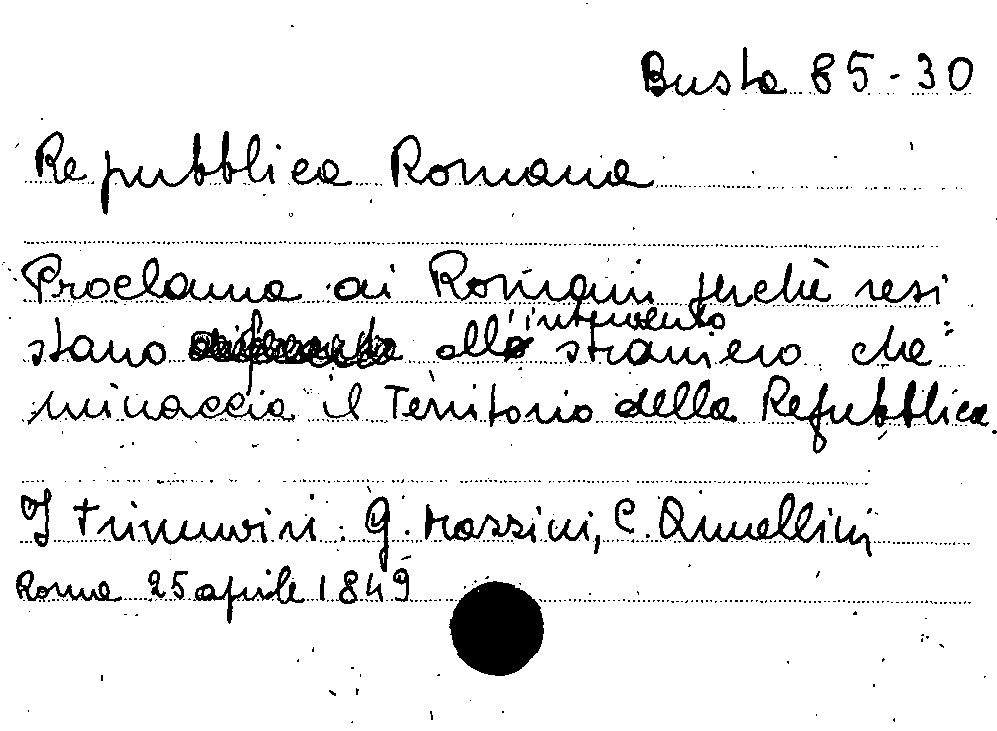 Busta 85-30
Repubblica Romana
Proclama ai Romani perchè resi
stano all'intervento straniero che
minaccia il Territorio della Repubblica.
I Triumviri: G. Mazzini, C. Armellini,
Roma 25 aprile 1849